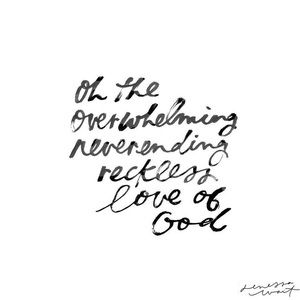 oh the
overwhelming
neverending
reckless
love of
God